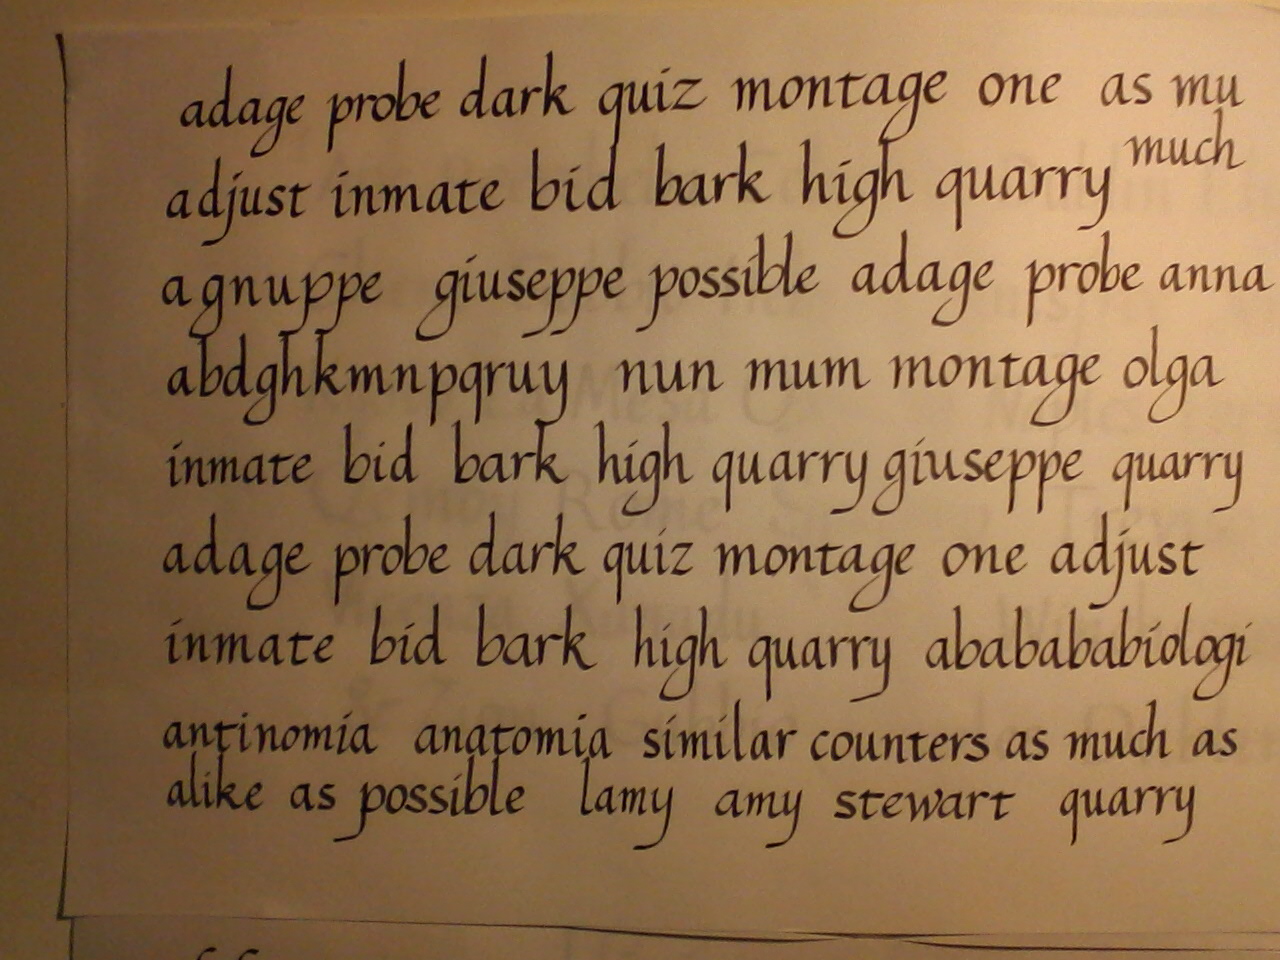 adage probe dark quiz montage one as mu
much
adjust inmate bid bark high quarry
agnuppe giuseppe possible adage probe anna
abdghkmnpqruy nun mum montage olga
inmate bid bark high quarry giuseppe quarry
adage probe dark quiz montage one adjust
inmate bid bark high quarry ababababiologi
antinomia anatomia similar counters as much as
alike as possible lamy amy stewart quarry